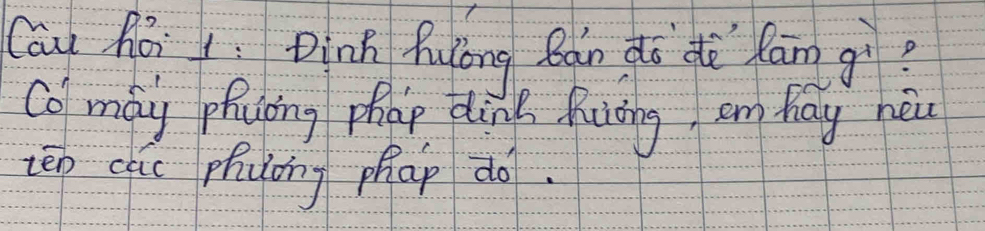 Câu hỏi 1: Định hướng bản đồ để làm gì?
Có mấy phương pháp định hướng, em hãy nêu
tên các phương pháp đó.